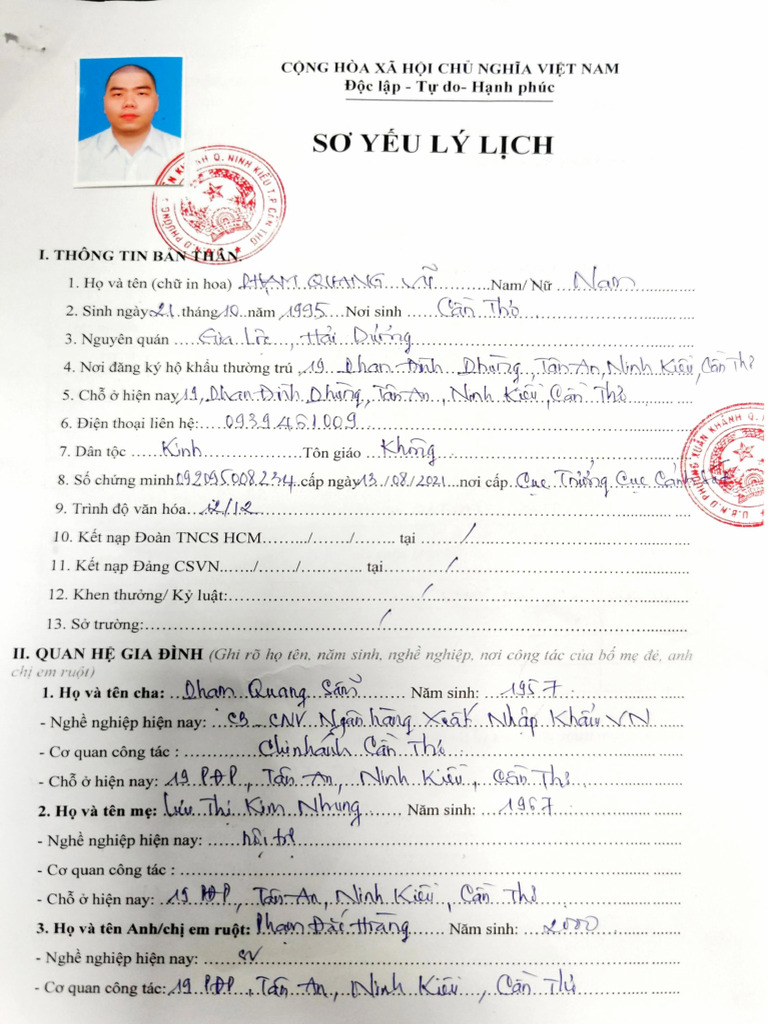 CỘNG HÒA XÃ HỘI CHỦ NGHĨA VIỆT NAM
Độc lập - Tự do- Hạnh phúc
SƠ YẾU LÝ LỊCH
I. THÔNG TIN BẢN THÂN.
1. Họ và tên (chữ in hoa) PHẠM QUANG VŨ Nam/ Nữ Nam
2. Sinh ngày 21 tháng 10 năm 1995 Nơi sinh Cần Thơ
3. Nguyên quán Gia Lộc, Hải Dương
4. Nơi đăng ký hộ khẩu thường trú 19 Phan Đình Phùng, Tân An, Ninh Kiều, Cần Thơ
5. Chỗ ở hiện nay 19, Phan Đình Phùng, Tân An, Ninh Kiều, Cần Thơ
6. Điện thoại liên hệ: 0939461009
7. Dân tộc Kinh Tôn giáo Không
8. Số chứng minh 092095008234 cấp ngày 13/08/2021 nơi cấp Cục Trưởng Cục Cảnh Sát
9. Trình độ văn hóa 12/12
10. Kết nạp Đoàn TNCS HCM ....../....../........ tại /
11. Kết nạp Đảng CSVN ....../....../........ tại /
12. Khen thưởng/ Kỷ luật: /
13. Sở trường: /
II. QUAN HỆ GIA ĐÌNH (Ghi rõ họ tên, năm sinh, nghề nghiệp, nơi công tác của bố mẹ đẻ, anh
chị em ruột)
1. Họ và tên cha: Phạm Quang Sản Năm sinh: 1957
- Nghề nghiệp hiện nay: CB-CNV Ngân hàng Xuất Nhập Khẩu VN
- Cơ quan công tác : Chi nhánh Cần Thơ
- Chỗ ở hiện nay: 19 PĐP, Tân An, Ninh Kiều, Cần Thơ
2. Họ và tên mẹ: Lưu Thị Kim Nhung Năm sinh: 1967
- Nghề nghiệp hiện nay: nội trợ
- Cơ quan công tác :
- Chỗ ở hiện nay: 19 PĐP, Tân An, Ninh Kiều, Cần Thơ
3. Họ và tên Anh/chị em ruột: Phạm Hằng Năm sinh: 2000
- Nghề nghiệp hiện nay: SV
- Cơ quan công tác: 19 PĐP, Tân An, Ninh Kiều, Cần Thơ